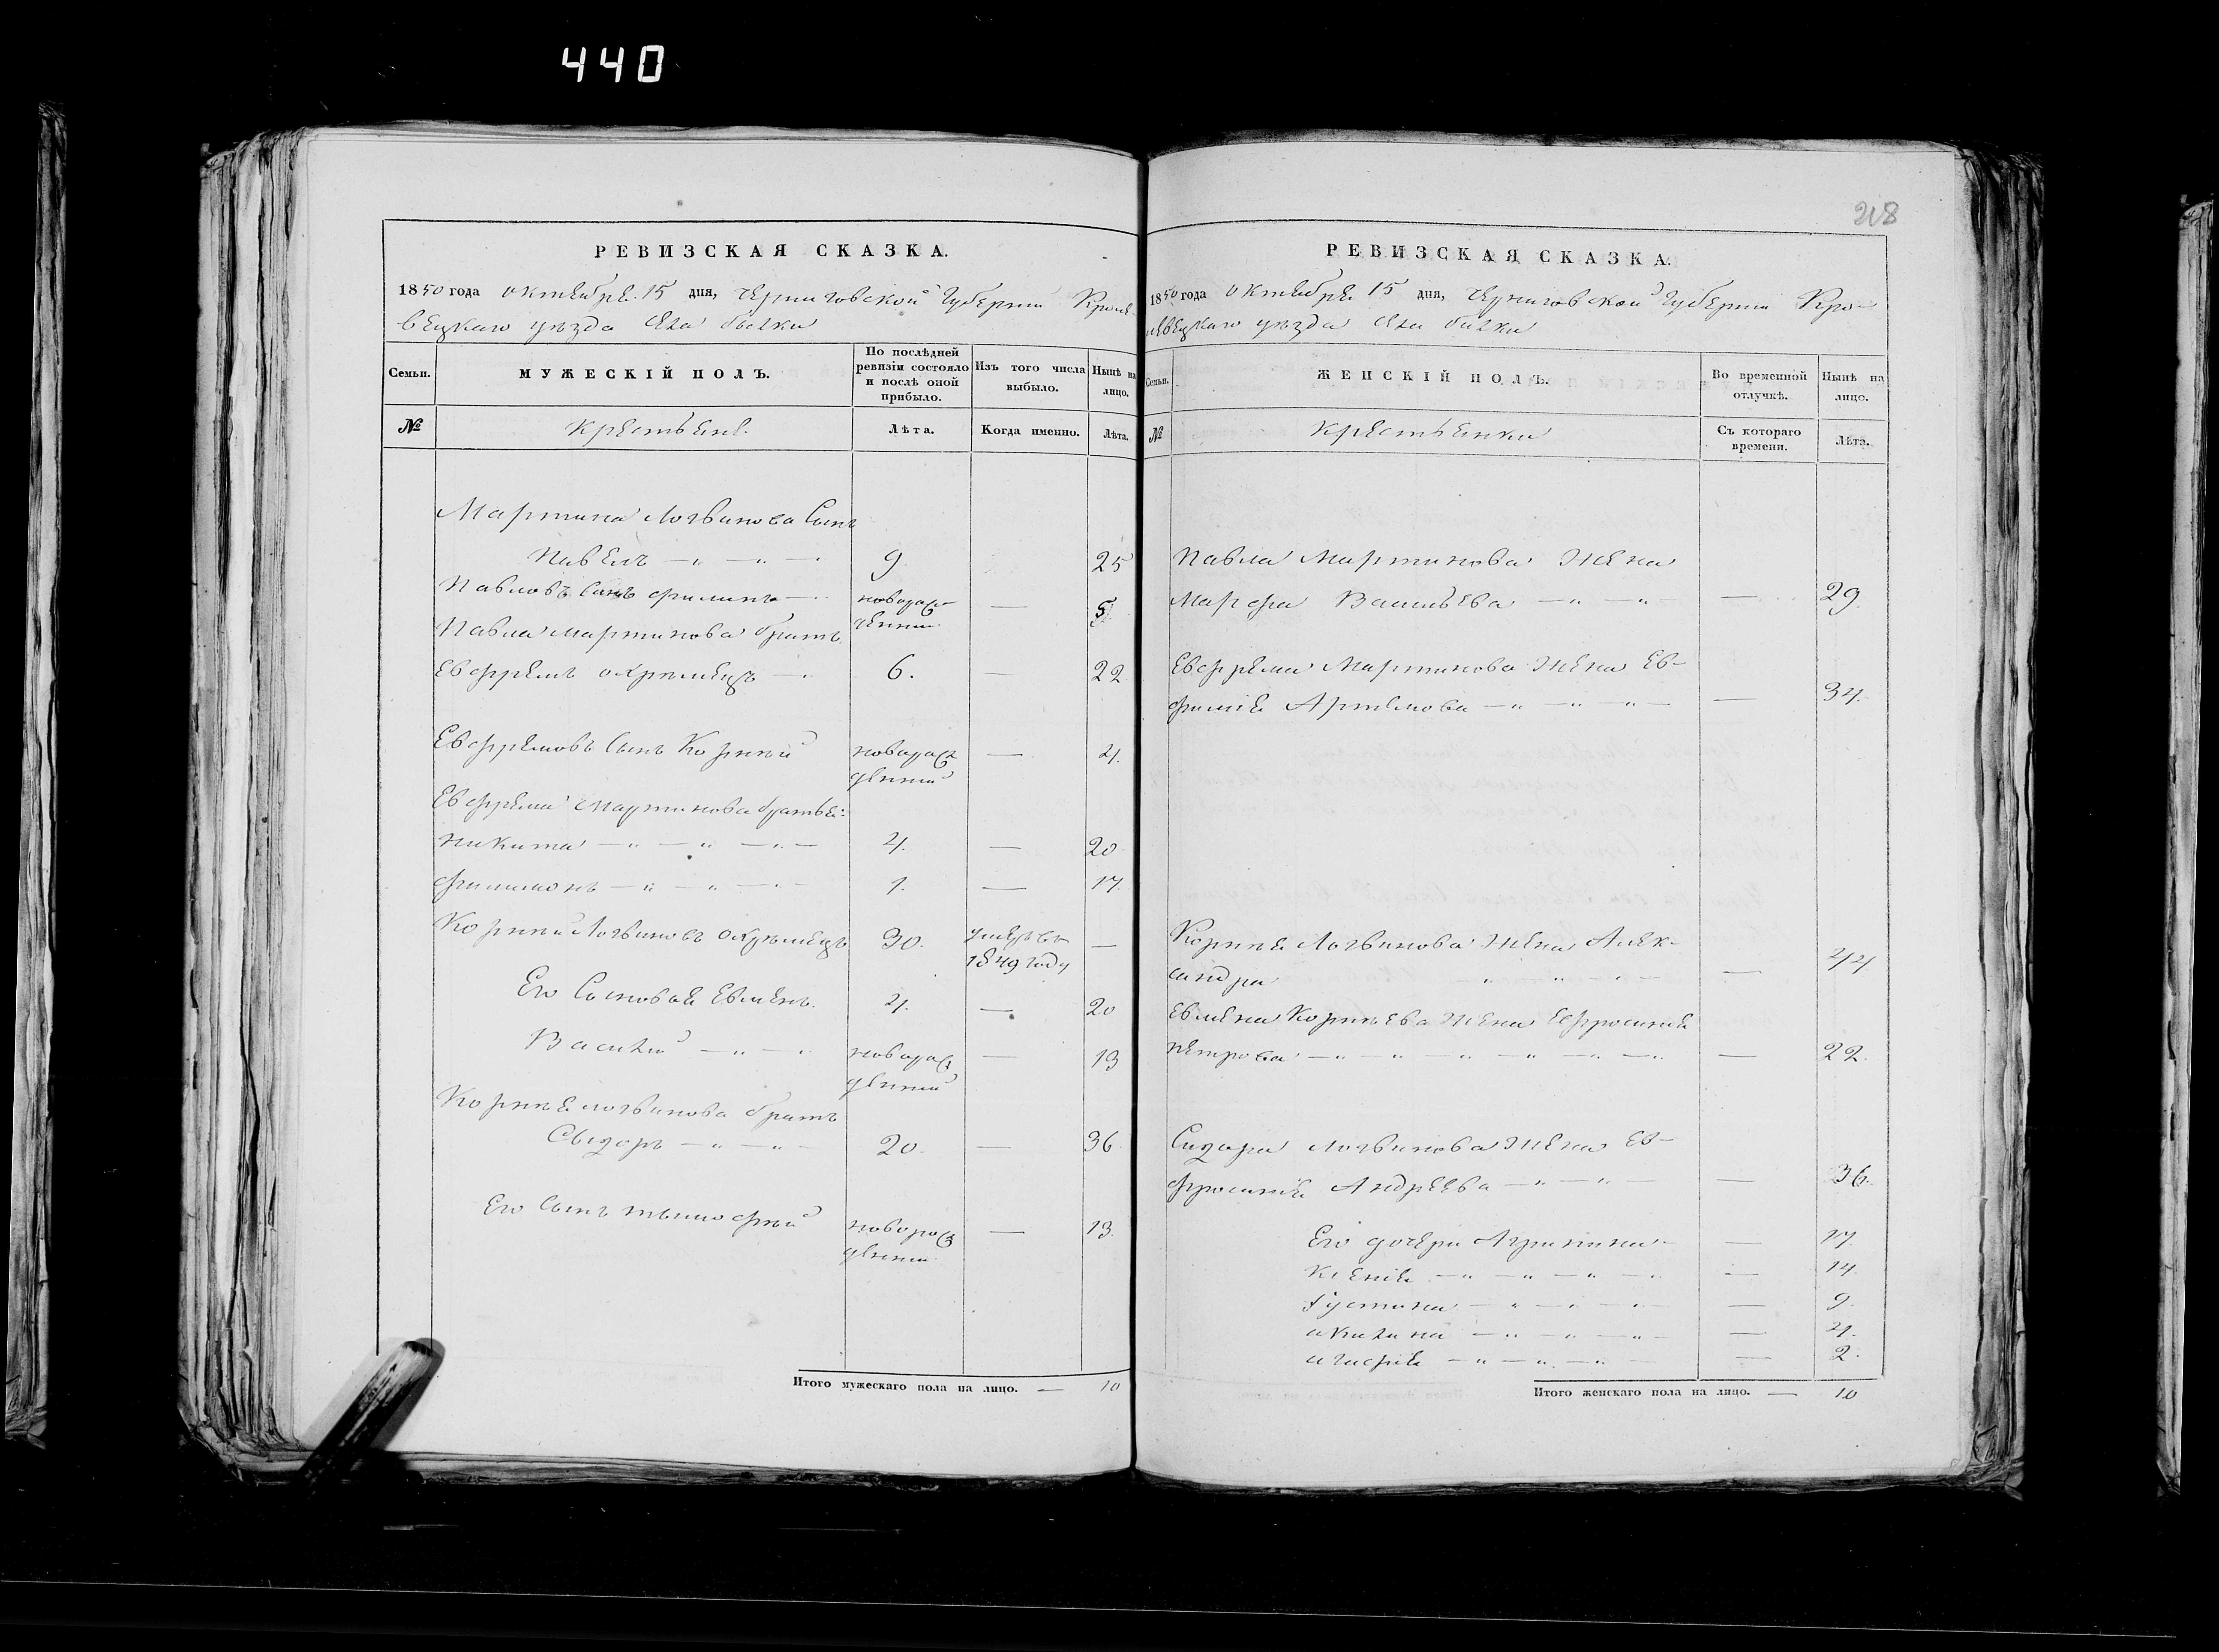 440
РЕВИЗСКАЯ СКАЗКА.
1850 года октября 15 дня, Черниговской Губернии Кроле-
вецкаго уезда Села Бычка
Семьи.
МУЖЕСКІЙ ПОЛЪ.
По послѣдней ревизіи состояло и послѣ оной прибыло.
Изъ того числа выбыло.
Нынѣ на лицо.
№
Крестьяне.
Лѣта.
Когда именно.
Лѣта.
Мартина Логвинова Сынъ
Павелъ 9. 25
Павловъ Сынъ Филипъ новорож- — 5
денный
Павла Мартинова братъ
Евфремъ Охрѣмецъ — 6. — 22
Евфремовъ Сынъ Корнѣй новорож — 4.
денный
Евфрема Мартинова братья:
Никита 4. — 20
Филимонъ 1. — 17.
Корней Логвиновъ Охрѣмецъ 30. умеръ въ —
1849 году
Его Сыновья Евменъ. 4. — 20
Василий новорож — 13
денный
Корнея Логвинова братъ
Сыдоръ 20. — 36.
Его Сынъ Тымофѣй новорож — 13.
денный
Итого мужескаго пола на лицо. — 10
218
РЕВИЗСКАЯ СКАЗКА.
1850 года октября 15 дня, Черниговской Губернии Кро-
левецкаго уезда Села Бичка
Семьи.
ЖЕНСКІЙ ПОЛЪ.
Во временной отлучкѣ.
Нынѣ на лицо.
№
Крестьянки
Съ котораго времени.
Лѣта.
Павла Мартинова Жена
Марфа Васильева — 29.
Евфрема Мартинова Жена Ев-
фимія Артемова — 34.
Корнея Логвинова Жена Алек-
сандра — 44
Евмена Корнѣева Жена Евфросинія
Петрова — 22.
Сидора Логвинова Жена Ев-
фросинія Андреева — 36.
Его дочери Агрипина — 17.
Ксенія — 14.
Густина — 9.
Акилина — 4.
Агафія — 2.
Итого женскаго пола на лицо. — 10